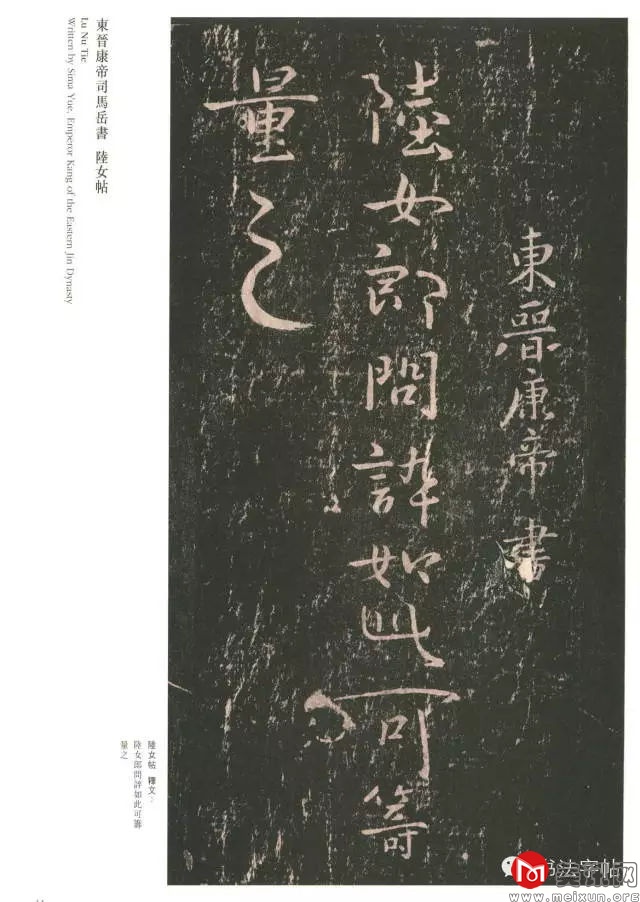 東晉康帝書
陸女郎問誶如此可籌
量之
東晉康帝司馬岳書 陸女帖
Lu Nu Tie
Written by Sima Yue, Emperor Kang of the Eastern Jin Dynasty
陸女帖 釋文：
陸女郎問誶如此可籌
量之
书法字帖
www.meixun.org